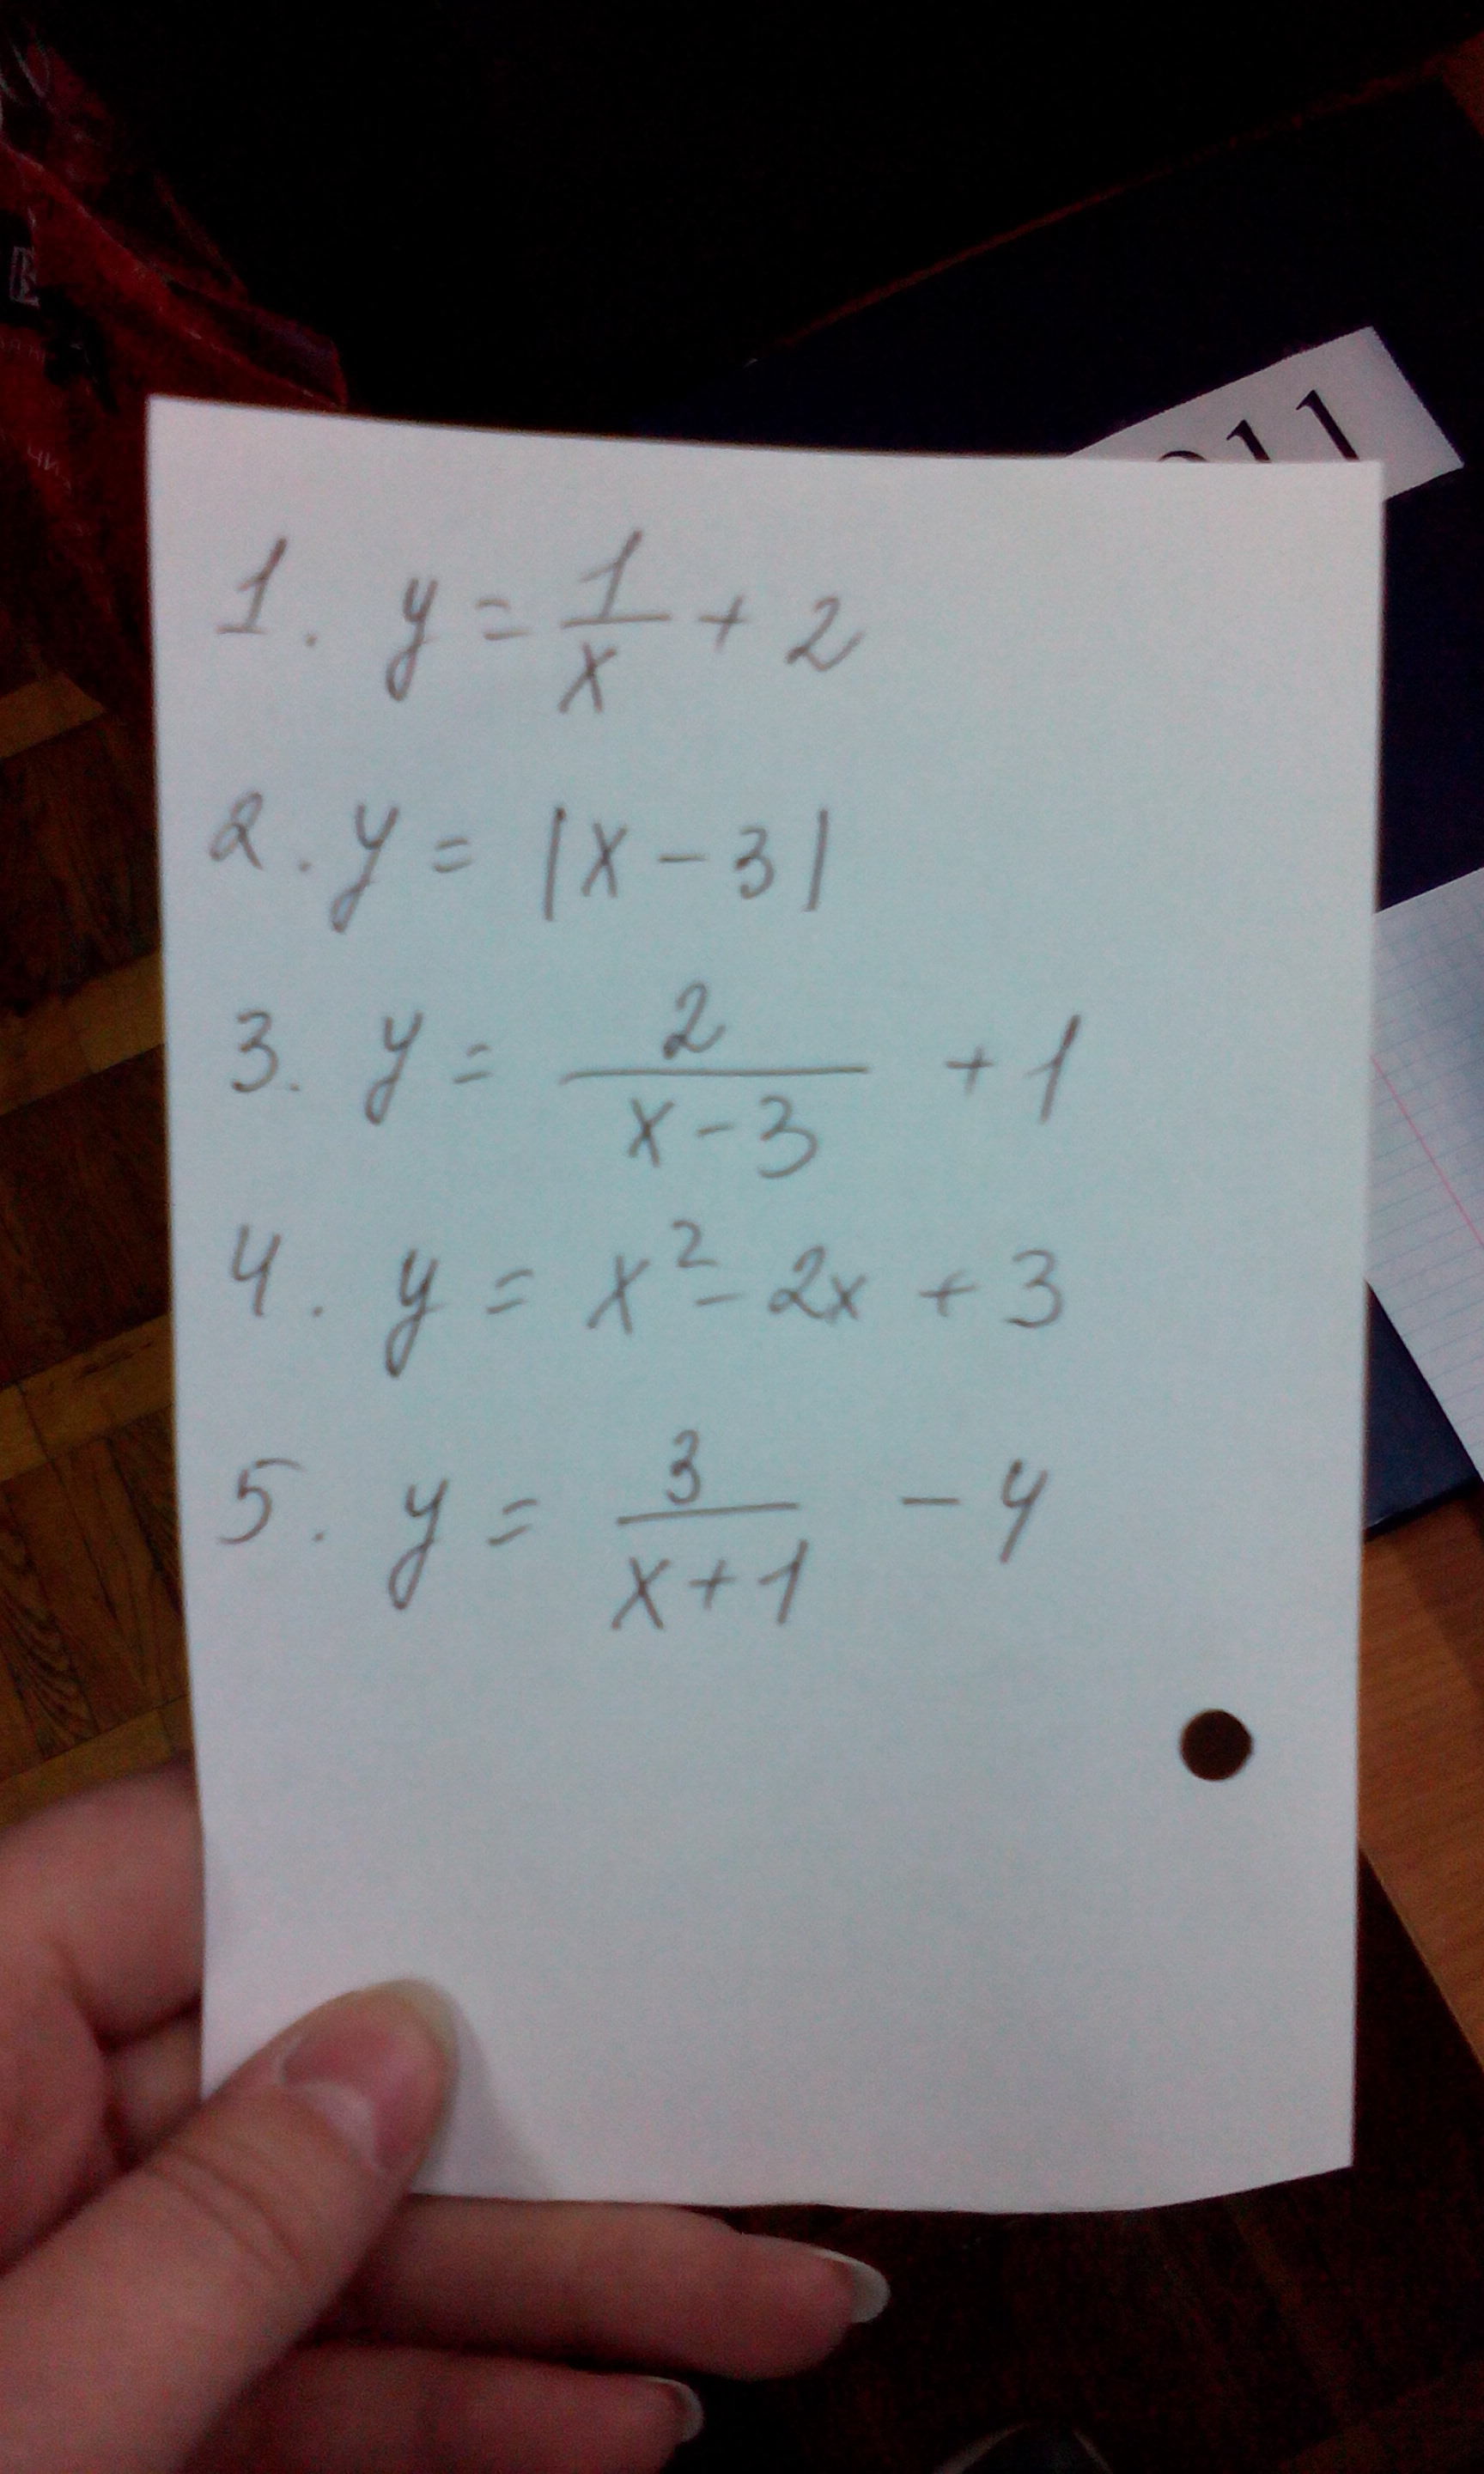 011
1. y = 1/x + 2
2. y = |x - 3|
3. y = 2/(x - 3) + 1
4. y = x² - 2x + 3
5. y = 3/(x + 1) - 4